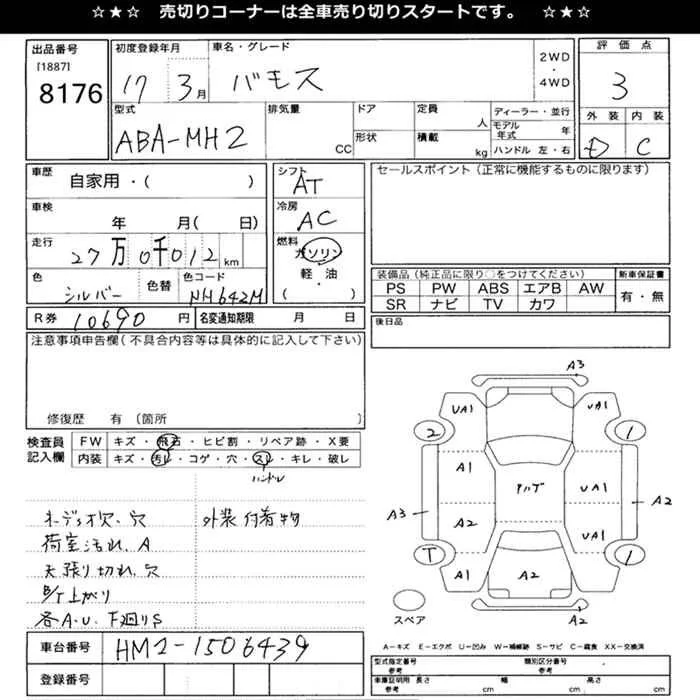 ☆★☆ 売切りコーナーは全車売り切りスタートです。 ☆★☆
出品番号
[1887]
8176
初度登録年月
17 3月
車名・グレード
バモス
2WD
・
4WD
評価点
3
外装 内装
D C
型式
ABA-MH2
排気量
CC
ドア
形状
定員
人
積載
kg
ディーラー・並行
モデル年式 年
ハンドル 左・右
車歴
自家用・( )
車検
年 月( 日)
走行
27万0千012km
色
シルバー
色替
色コード
NH642M
シフト
AT
冷房
AC
燃料
ガソリン
軽・油
( )
セールスポイント(正常に機能するものに限ります)
装備品(純正品に限り○をつけてください)
PS PW ABS エアB AW
SR ナビ TV カワ
新車保証書
有・無
後日品
R券 10690 円
名変通知期限 月 日
注意事項申告欄(不具合内容等は具体的に記入して下さい)
修復歴 有(箇所
検査員記入欄
FW キズ・飛石・ヒビ割・リペア跡・X要
内装 キズ・汚レ・コゲ・穴・スレ・キレ・破レ
ハンドル
穴
外装付着物
荷室汚れ、A
天張り切れ、穴
上がり
各A.U. 下廻りS
車台番号 HM2-1506439
登録番号
A3
UA1 UA1
2 1
A1 UA1
A3 A2
A2 UA1
T 1
A1 A2
スペア
A2
A-キズ E-エクボ U-凹み W-補修跡 S-サビ C-腐食 XX-交換済
型式指定番号 参考
類別区分番号 参考
車庫証明用 参考
長さ cm
幅 cm
高さ cm